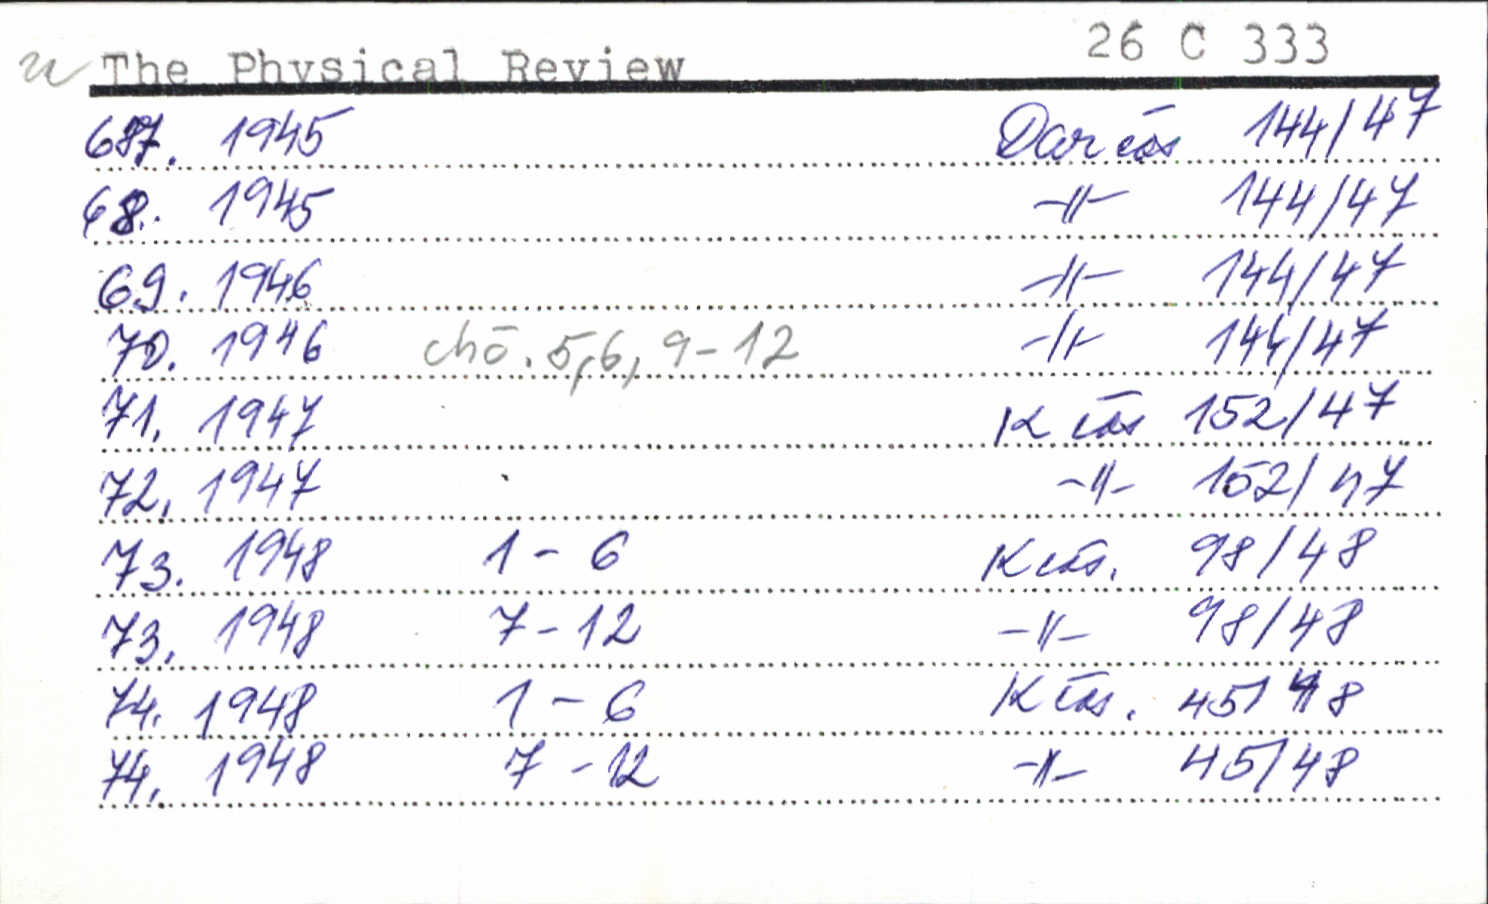 The Physical Review 26 C 333
67. 1945 Dar čas 144/47
68. 1945 -"- 144/47
69. 1946 -"- 144/47
70. 1946 chō. 5,6, 9-12 -"- 144/47
71. 1947 K čas 152/47
72. 1947 -"- 152/47
73. 1948 1-6 K čas. 98/48
73. 1948 7-12 -"- 98/48
74. 1948 1-6 K čas. 45/48
74. 1948 7-12 -"- 45/48